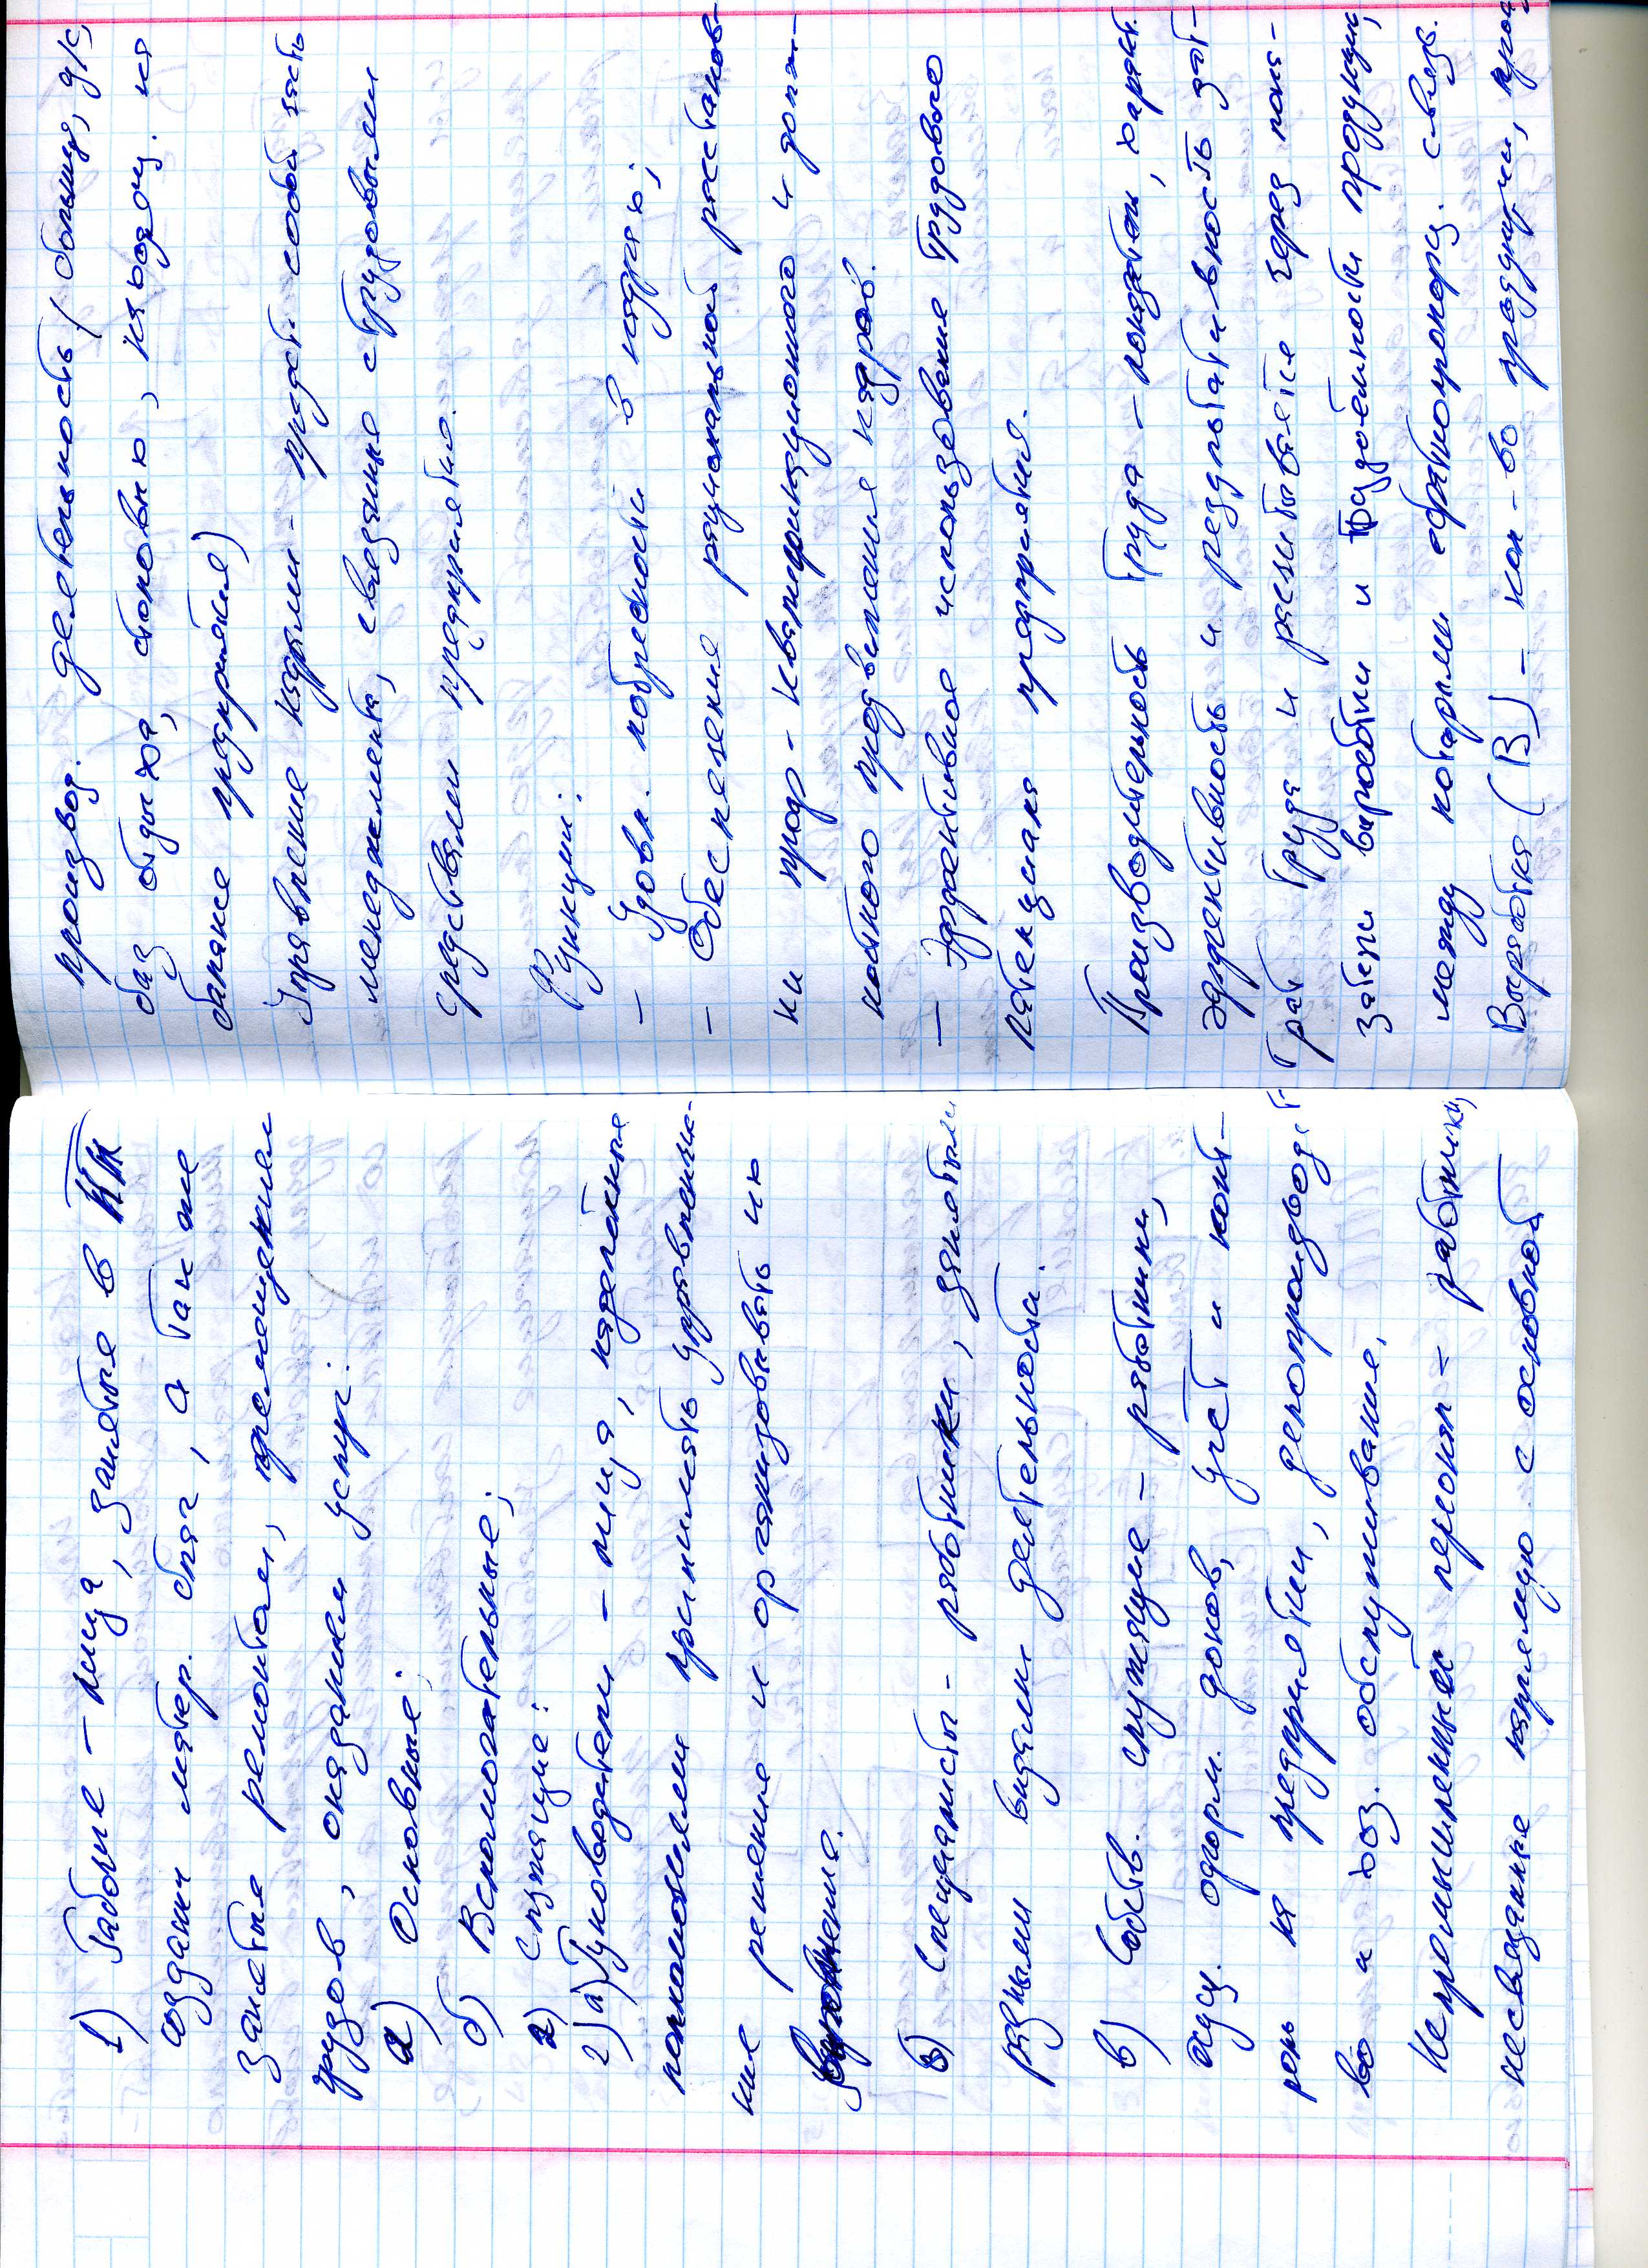 1) Рабочие – лица, занятые в
создани матер. благ, а так же
занятые ремонтом, перемещением
грузов, оказанием услуг:
а) Основные;
б) Вспомогательные;
2) Служащие:
а) Руководители – лица, наделённые
полномочиями принимать управленчес-
кие решение и организовывать их
б) Специалисты – работники, занятые
разными видами деятельности.
в) Собств. служащие – работники,
осущ. оформ. доков, учёт и конт-
роль на предприятии, делопроизводст
во и хоз. обслуживание.
Непромышленный персонал – работники,
несвязанные напрямую с основной
производ. деятельность (больниц, д/с,
баз отдыха, столовых, находящ. на
балансе предприятия)
Управление кадрами – предст. собой часть
менеджмента, связанные с трудовыми
средствами предприятия.
Функции:
– Удовл. потребности в кадрах;
– Обеспечение рациональной расстанов-
ки проф-квалификационного и долж-
ностного продвижения кадров.
– Эффективное использование трудового
потенциала предприятия.
Производительность труда – показатель, характ.
эффективность и результативность зат-
рат труда и расчитывается через пока-
затели выработки и трудоёмкости продукции,
между которыми обратнопропорц. связь.
Выработка (В) – кол-во продукции,